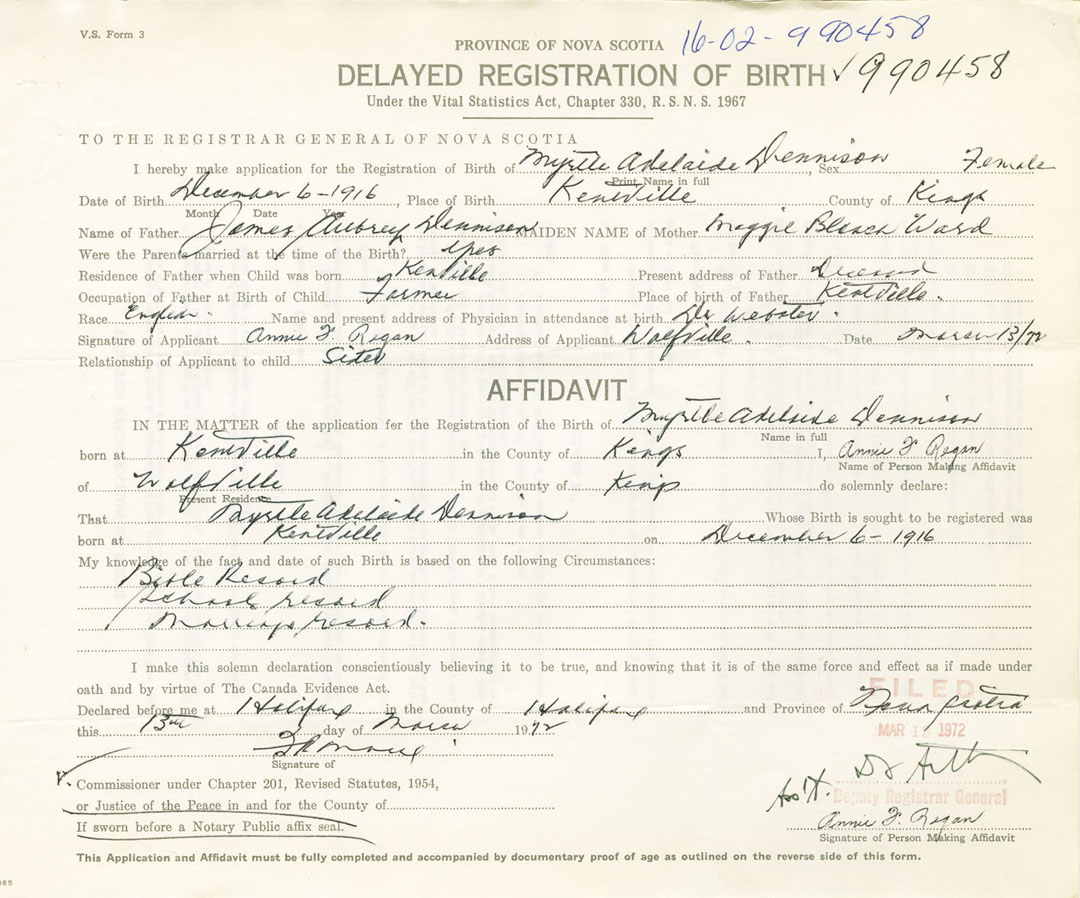 V.S. Form 3
16-02-990458
PROVINCE OF NOVA SCOTIA
DELAYED REGISTRATION OF BIRTH ✓990458
Under the Vital Statistics Act, Chapter 330, R.S.N.S. 1967
TO THE REGISTRAR GENERAL OF NOVA SCOTIA
I hereby make application for the Registration of Birth of Myrtle Adelaide Dennison, Sex Female
Print Name in full
Date of Birth December 6-1916, Place of Birth Kentville County of Kings
Month Date Year
Name of Father James Aubrey Dennison MAIDEN NAME of Mother Maggie Ward
Were the Parents married at the time of the Birth? Yes
Residence of Father when Child was born Kentville Present address of Father Deceased
Occupation of Father at Birth of Child Farmer Place of birth of Father Kentville.
Race English. Name and present address of Physician in attendance at birth Dr Webster.
Signature of Applicant Annie F. Regan Address of Applicant Wolfville. Date March 13/72
Relationship of Applicant to child Sister
AFFIDAVIT
IN THE MATTER of the application for the Registration of the Birth of Myrtle Adelaide Dennison
Name in full
born at Kentville in the County of Kings I, Annie F Regan
Name of Person Making Affidavit
of Wolfville in the County of Kings do solemnly declare:
Present Residence
That Myrtle Adelaide Dennison Whose Birth is sought to be registered was
born at Kentville on December 6-1916
My knowledge of the fact and date of such Birth is based on the following Circumstances:
Bible Record
School record
Marriage record.
I make this solemn declaration conscientiously believing it to be true, and knowing that it is of the same force and effect as if made under
oath and by virtue of The Canada Evidence Act.
FILED
Declared before me at Halifax in the County of Halifax and Province of Nova Scotia
this 13th day of March 1972
MAR 13 1972
Signature of
Commissioner under Chapter 201, Revised Statutes, 1954,
or Justice of the Peace in and for the County of
Ass't. Deputy Registrar General
If sworn before a Notary Public affix seal.
Annie F. Regan
Signature of Person Making Affidavit
This Application and Affidavit must be fully completed and accompanied by documentary proof of age as outlined on the reverse side of this form.